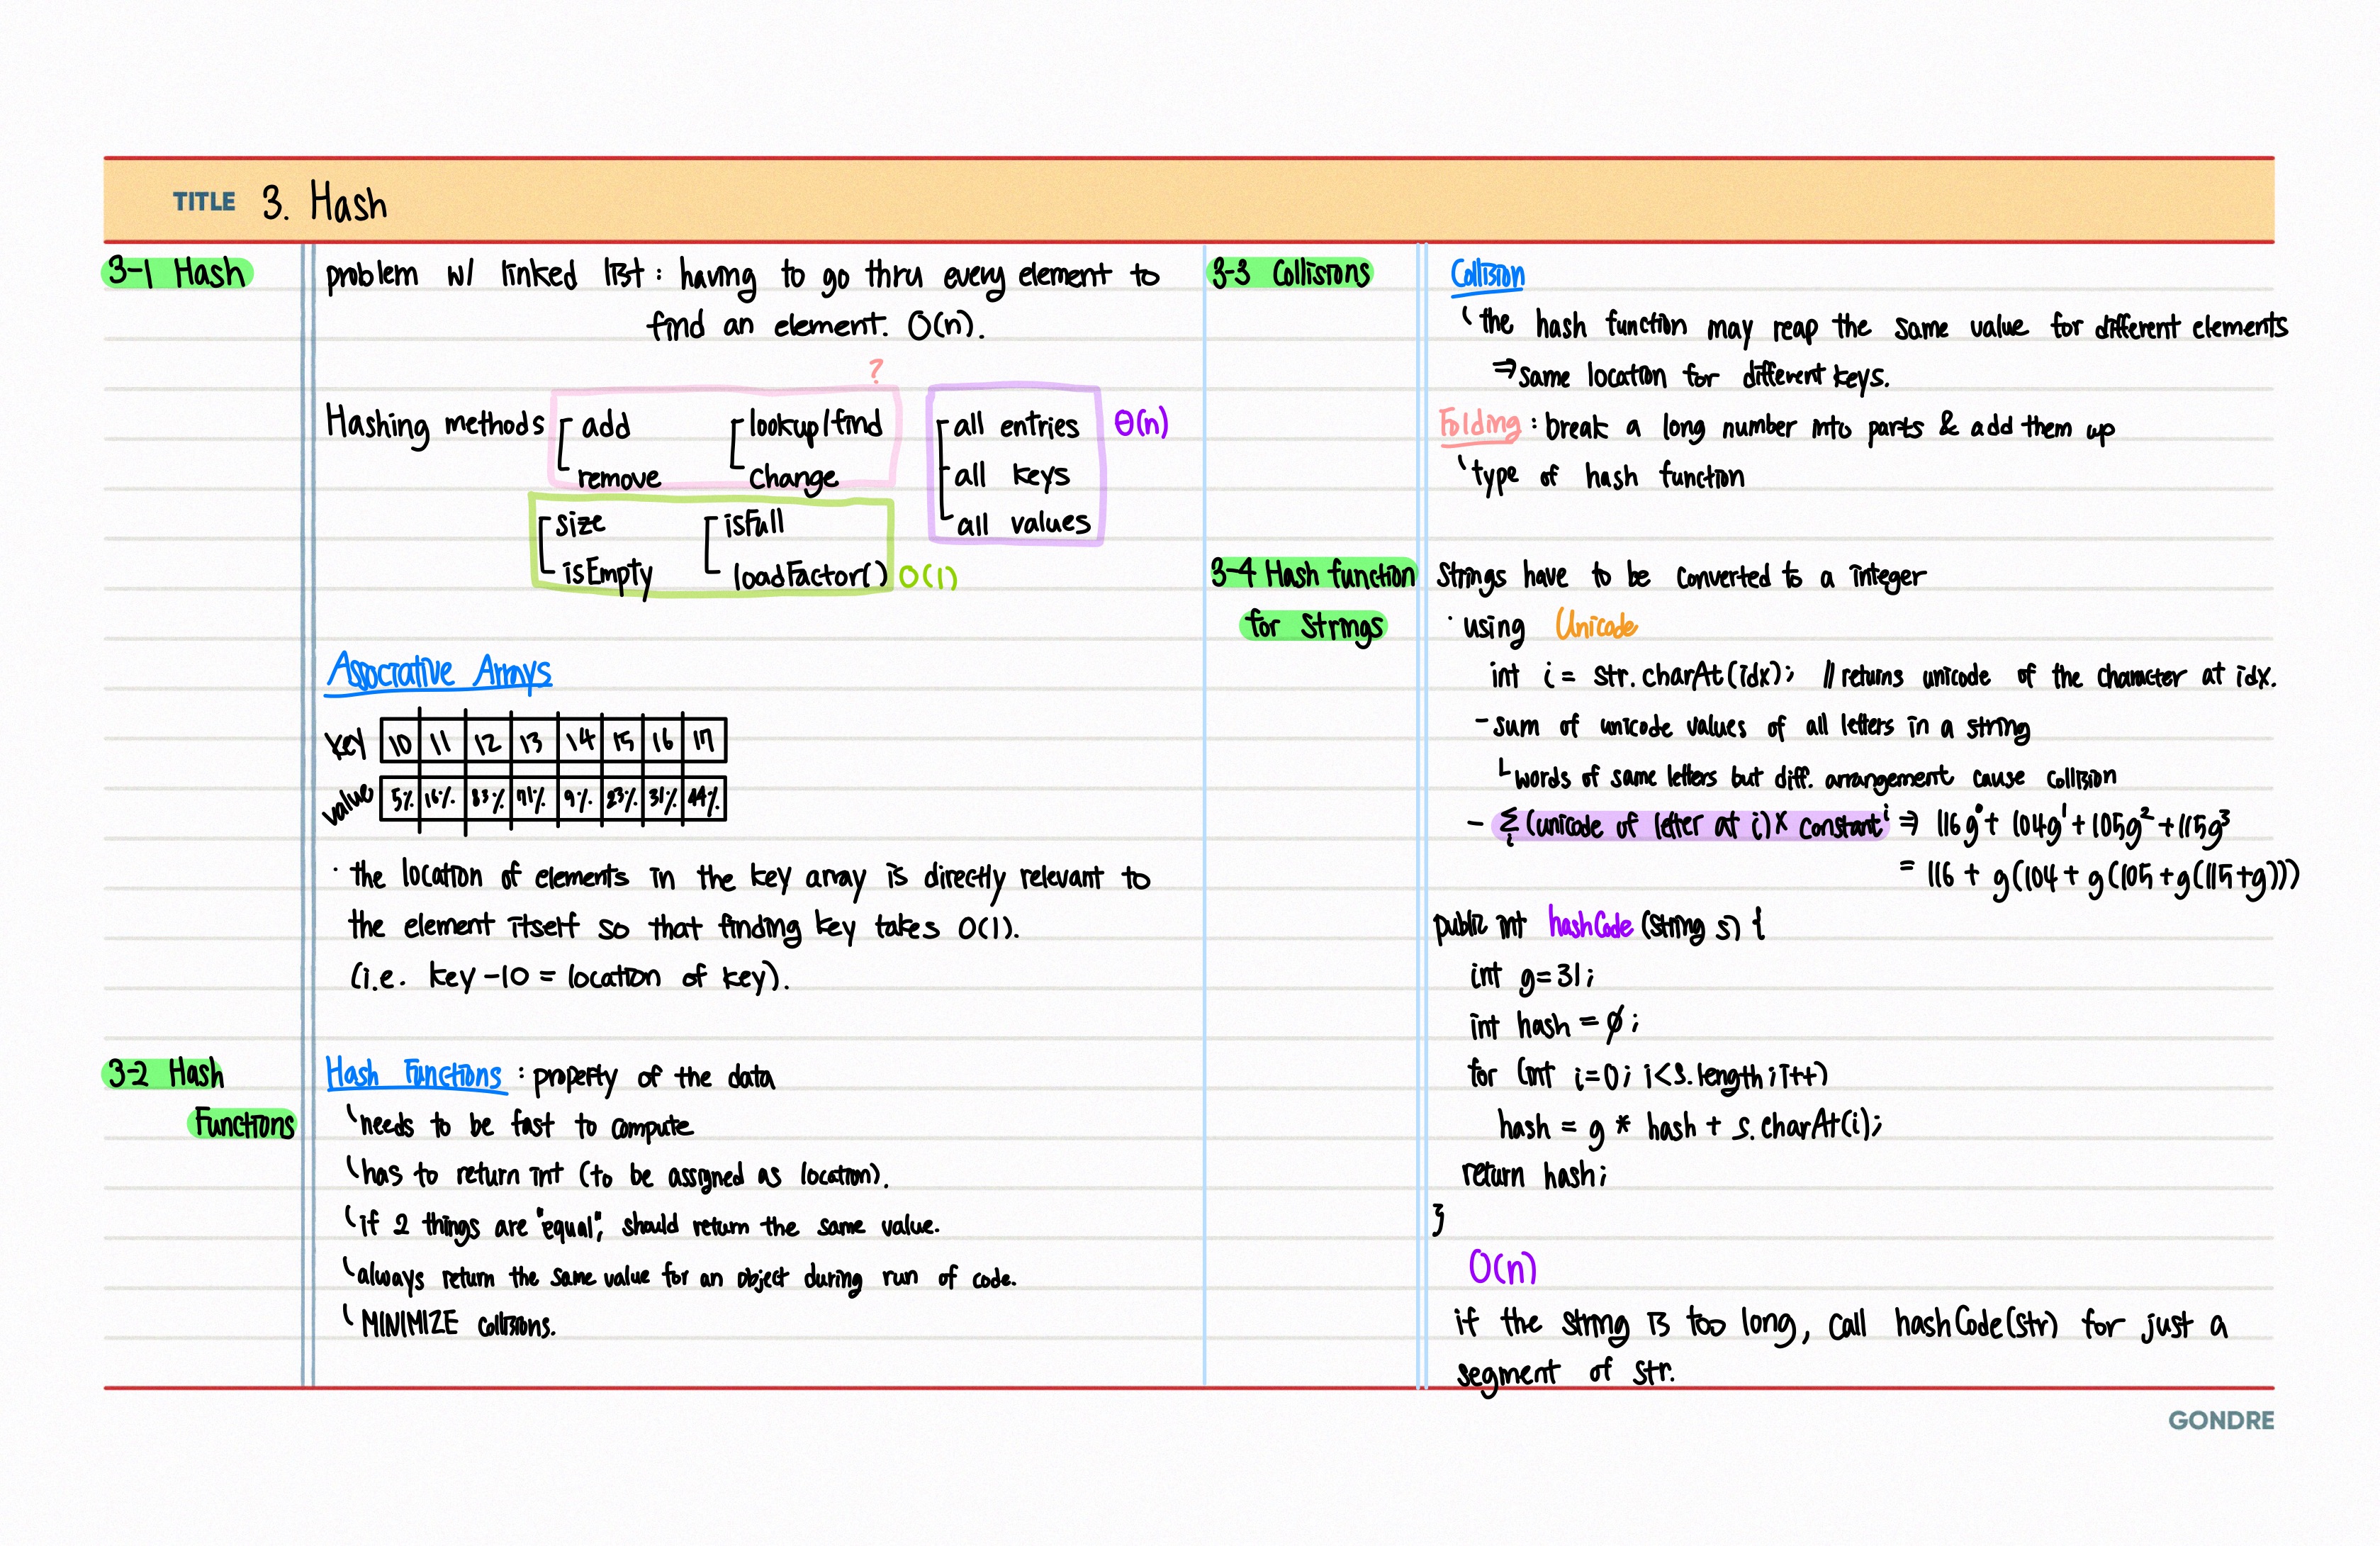 TITLE 3. Hash
3-1 Hash
problem w/ linked list : having to go thru every element to
find an element. O(n).
?
Hashing methods
add
remove
lookup/find
change
all entries
all keys
all values
Θ(n)
size
isEmpty
isFull
loadFactor()
O(1)
Associative Arrays
key 10 11 12 13 14 15 16 17
value 5% 16% 83% 71% 9% 23% 31% 44%
· the location of elements in the key array is directly relevant to
the element itself so that finding key takes O(1).
(i.e. key -10 = location of key).
3-2 Hash
Functions
Hash Functions : property of the data
needs to be fast to compute
has to return int (to be assigned as location).
if 2 things are "equal", should return the same value.
always return the same value for an object during run of code.
MINIMIZE collisions.
3-3 Collisions
Collision
the hash function may reap the same value for different elements
⇒ same location for different keys.
Folding : break a long number into parts & add them up
type of hash function
3-4 Hash function
for Strings
Strings have to be converted to a integer
· using Unicode
int i = str.charAt(idx); // returns unicode of the character at idx.
- sum of unicode values of all letters in a string
words of same letters but diff. arrangement cause collision
- Σi (unicode of letter at i) x constant^i ⇒ 116g⁰ + 104g¹ + 105g² + 115g³
= 116 + g(104 + g(105 + g(115+g)))
public int hashCode (String s) {
int g=31;
int hash = 0;
for (int i=0; i<s.length; i++)
hash = g * hash + s.charAt(i);
return hash;
}
O(n)
if the string is too long, call hashCode(str) for just a
segment of str.
GONDRE